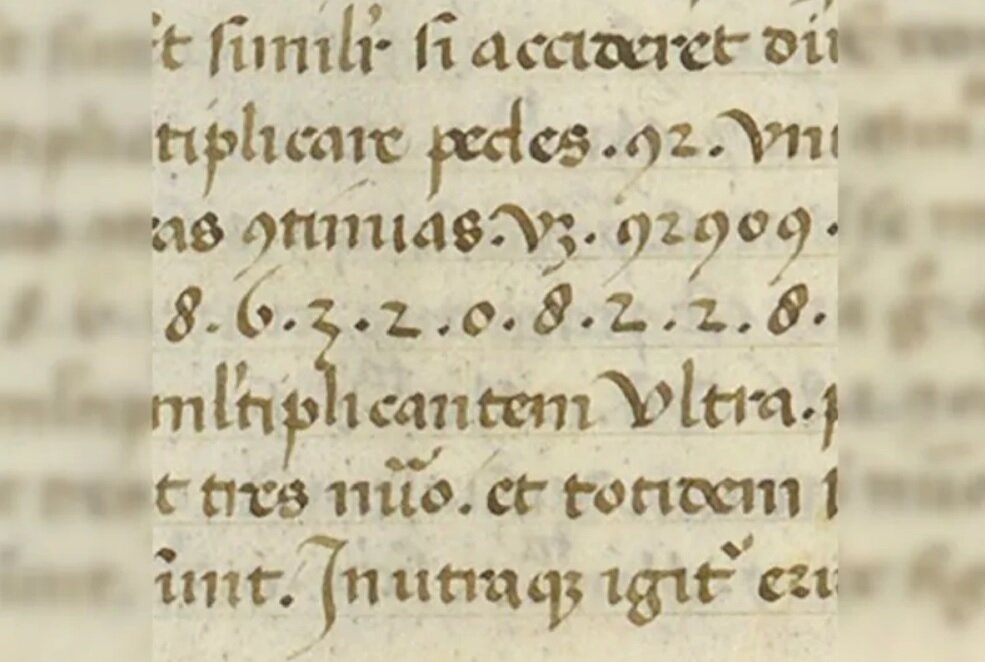 t simil'r si accideret dii
tiplicare pedes . 92 . vni
as 9tinuas . vꝫ . 92909 .
8 . 6 . 3 . 2 . 0 . 8 . 2 . 2 . 8 .
ml'tiplicantem vltra . p
t tres nũo . et totidem
unt . In utraqꝫ igit᷑ eru